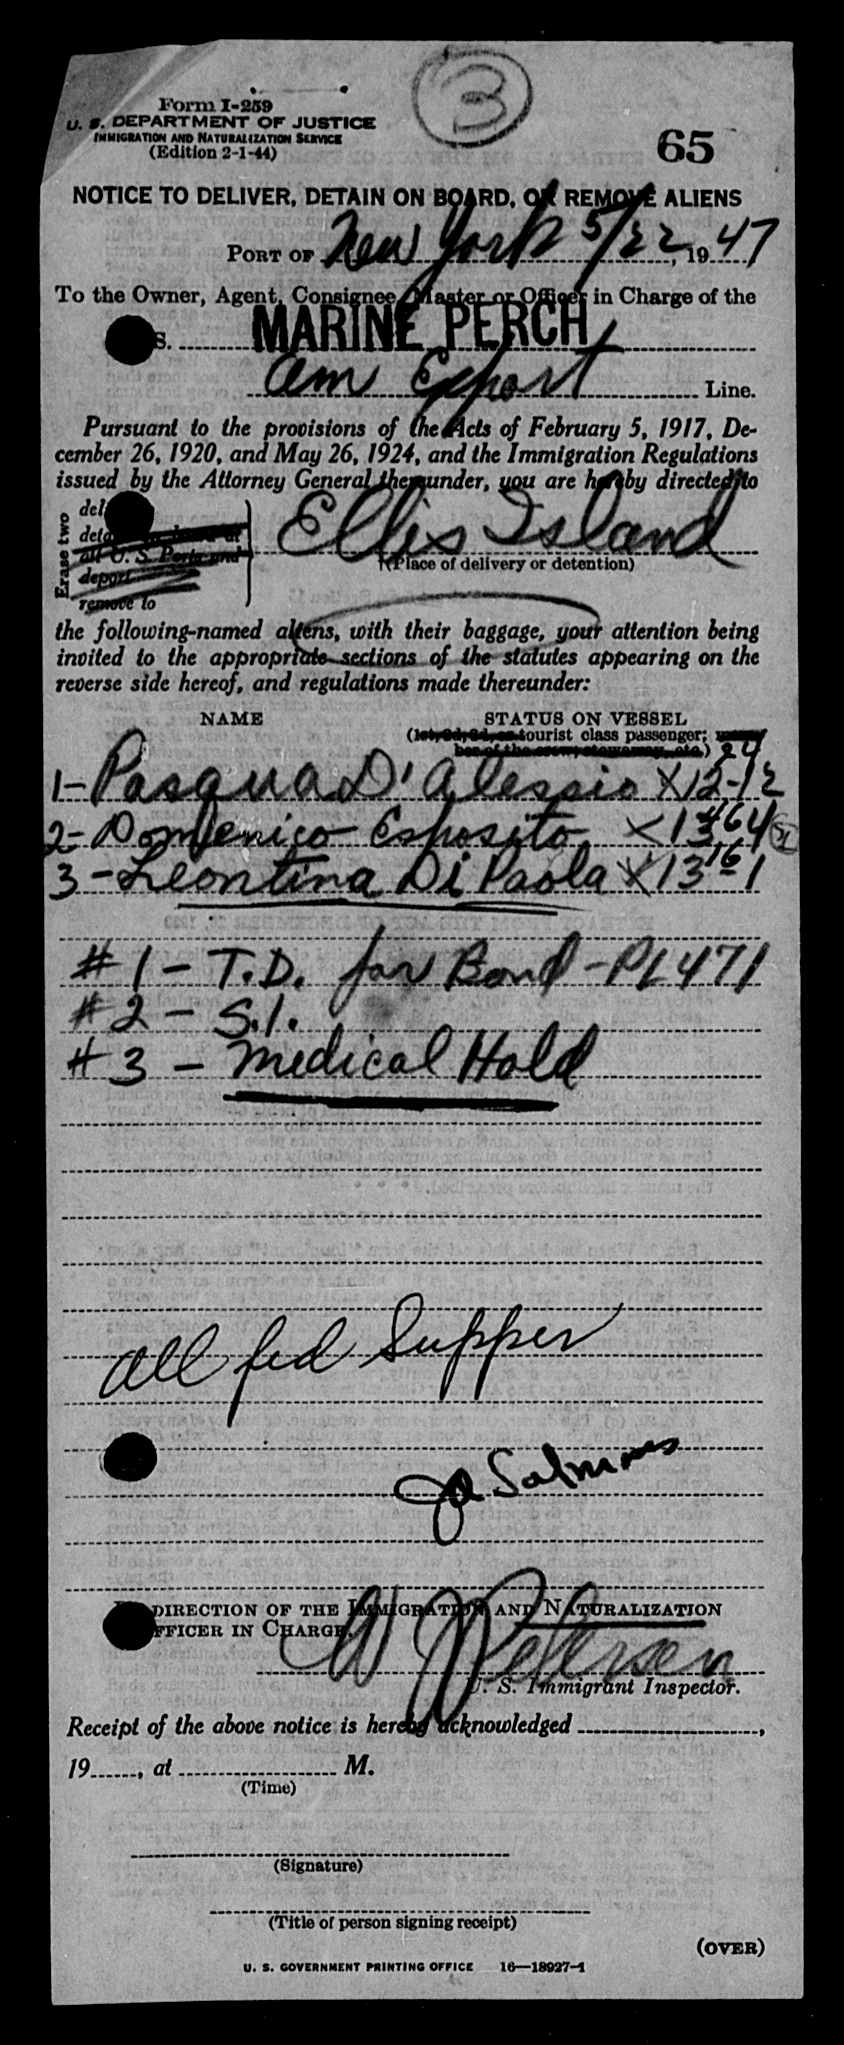 3
Form I-259
U. S. DEPARTMENT OF JUSTICE
IMMIGRATION AND NATURALIZATION SERVICE
(Edition 2-1-44)
65
NOTICE TO DELIVER, DETAIN ON BOARD, OR REMOVE ALIENS
PORT OF New York 5/22, 1947
To the Owner, Agent, Consignee, Master or Officer in Charge of the
S. MARINE PERCH
Am Export Line.
Pursuant to the provisions of the Acts of February 5, 1917, De-
cember 26, 1920, and May 26, 1924, and the Immigration Regulations
issued by the Attorney General thereunder, you are hereby directed to
Erase two
del
deta on board at
all U. S. Ports and
deport
remove to
Ellis Island
(Place of delivery or detention)
the following-named aliens, with their baggage, your attention being
invited to the appropriate sections of the statutes appearing on the
reverse side hereof, and regulations made thereunder:
NAME STATUS ON VESSEL
(1st, 2d, 3d, or tourist class passenger; mem-
ber of the crew, stowaway, etc.) 24
1- Pasqua D'Alessio X 12-12
2- Domenico Esposito X 13 464
3- Leontina Di Paola X 13 16-1
#1 - T.D. for Bond - PL 471
#2 - S.I.
#3 - Medical Hold
all fed Supper
DIRECTION OF THE IMMIGRATION AND NATURALIZATION
FFICER IN CHARGE,
W Petersen
U. S. Immigrant Inspector.
Receipt of the above notice is hereby acknowledged ,
19 , at M.
(Time)
(Signature)
(Title of person signing receipt)
(OVER)
U. S. GOVERNMENT PRINTING OFFICE 16—18927-1